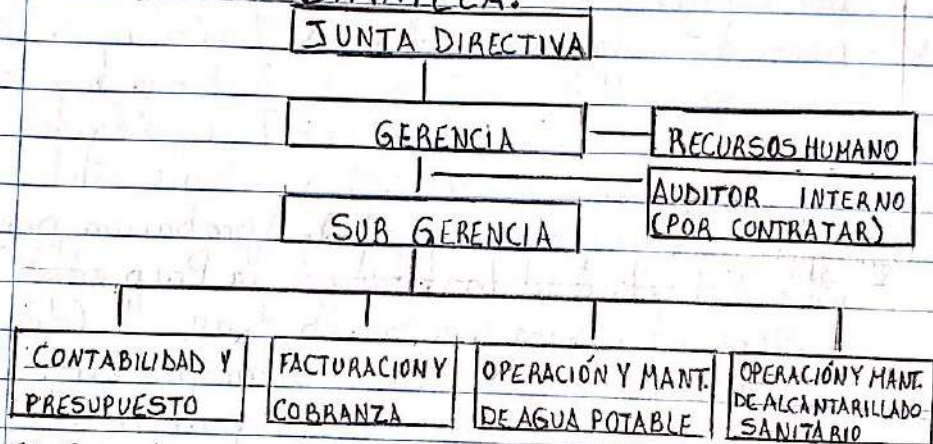 JUNTA DIRECTIVA
GERENCIA
RECURSOS HUMANO
AUDITOR INTERNO
(POR CONTRATAR)
SUB GERENCIA
CONTABILIDAD Y
PRESUPUESTO
FACTURACION Y
COBRANZA
OPERACIÓN Y MANT.
DE AGUA POTABLE
OPERACIÓN Y MANT.
DE ALCANTARILLADO
SANITARIO